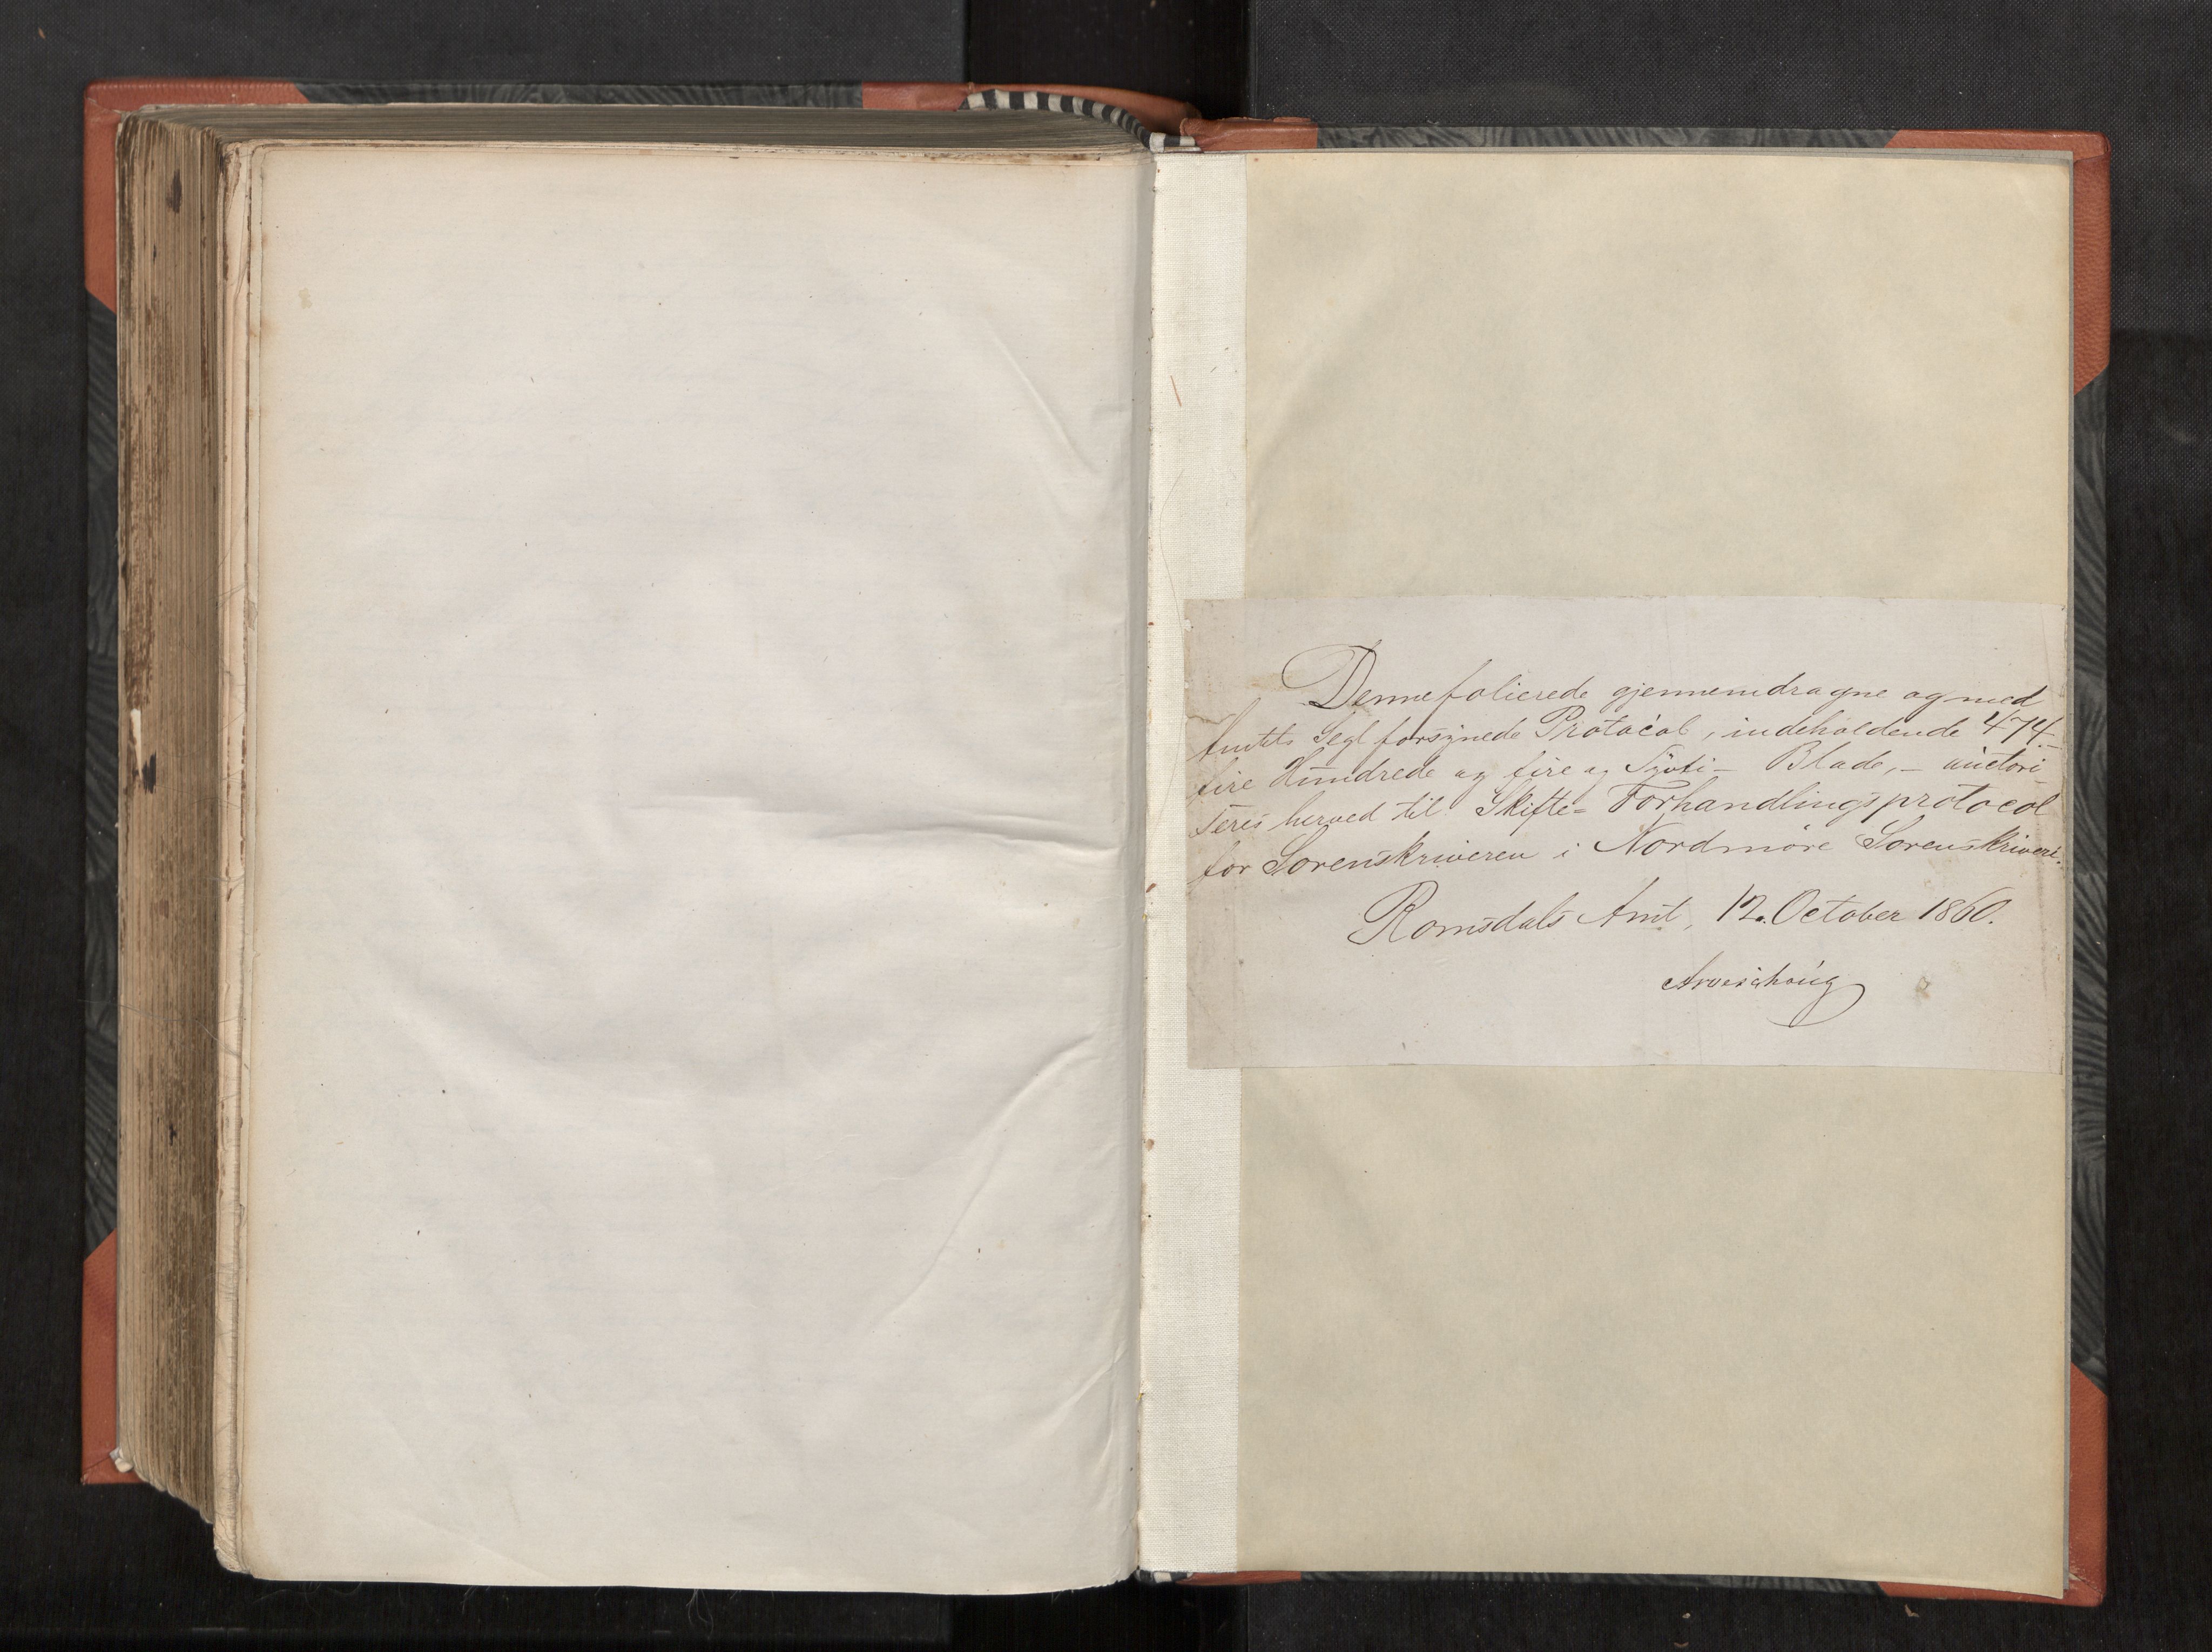 Denne folierede gjennemdragne og med
Amtets Segl forsynede Protocol, indeholdende 474.-
fire Hundrede og fire og Syvti- Blade, - auctori-
seres herved til Skifte= Forhandlingsprotocol
for Sorenskriveren i Nordmøre Sorenskriveri.
Romsdals Amt, 12. October 1860.
Arveschoug